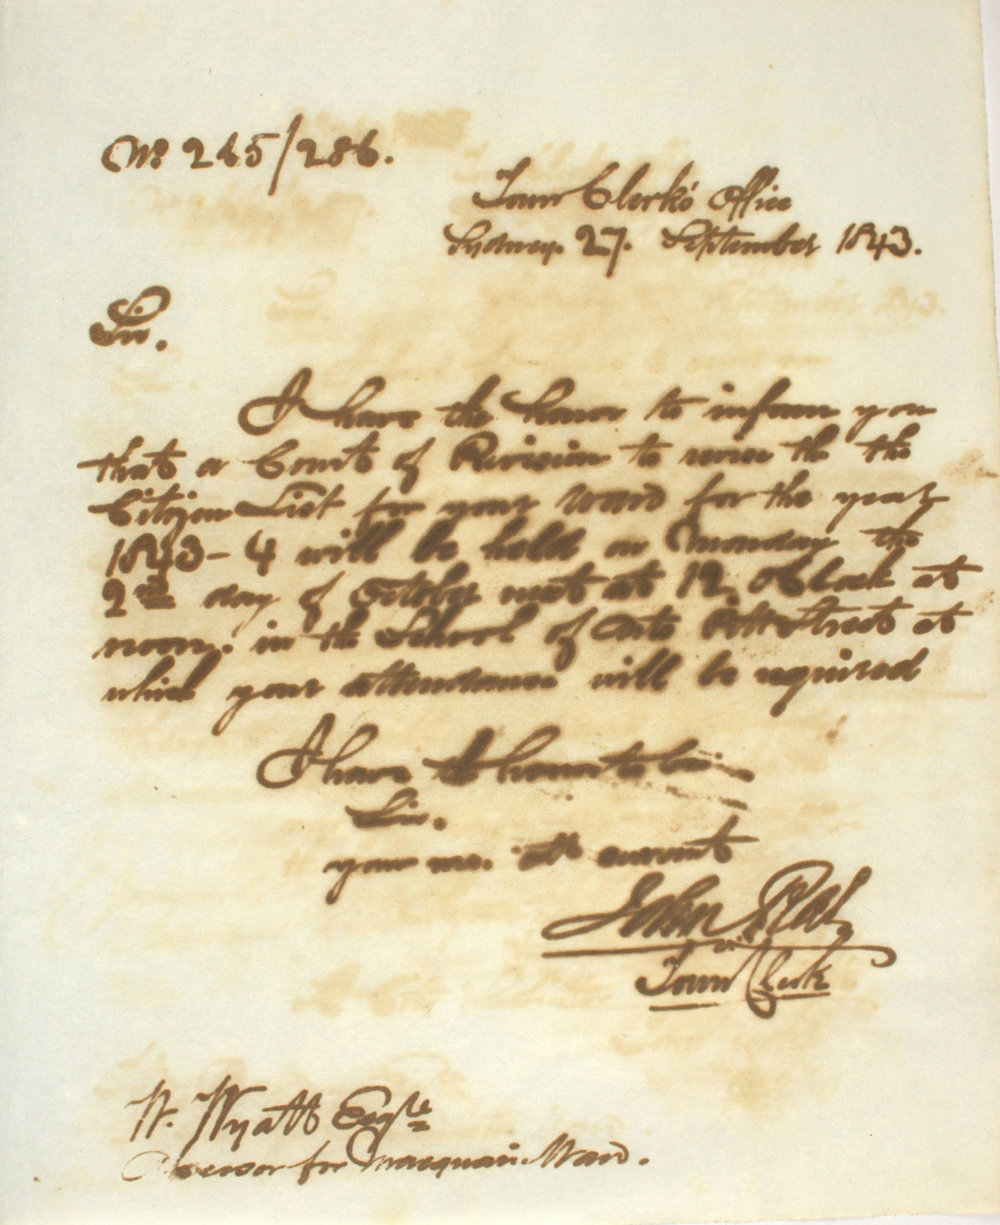 No 285/286.
Town Clerk's Office
Sydney. 27. September 1843.
Sir.
I have the honor to inform you
that a Court of Revision to revise the the
Citizen List for your Ward for the year
1843-4 will be held on Monday the
2nd day of October next at 12. O'Clock at
noon. in the School of Arts Pitt Street at
which your attendance will be required
I have the honor to be
Sir.
your mo. obt servant
John
Town Clerk
W. Wyatt Esqre
Assessor for Macquarie Ward.